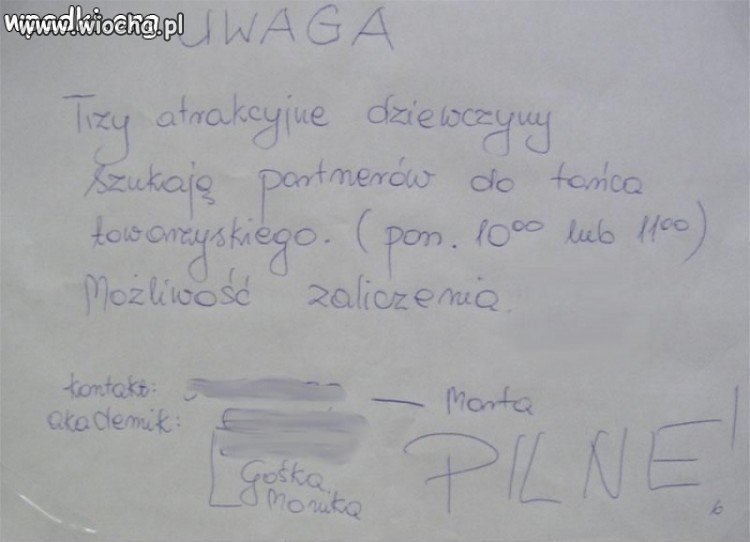 www.wiocha.pl
UWAGA
Trzy atrakcyjne dziewczyny
szukają partnerów do tańca
towarzyskiego. (pon. 10⁰⁰ lub 11⁰⁰)
Możliwość zaliczenia.
kontakt: — Marta
akademik:
Gośka,
Monika
PILNE!